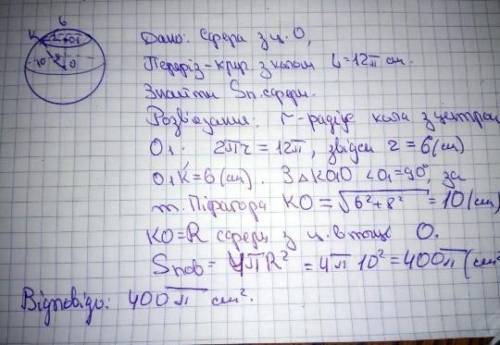 Дано: Сфера з ц. О,
Переріз - круг з колом L = 12π см.
Знайти Sп. сфери.
Розв'язання: r - радіус кола з центром
O₁: 2πr = 12π, звідси r = 6 (см)
O₁K = 6 (см). З △KO₁O ∠O₁ = 90°, за
т. Піфагора KO = √6² + 8² = 10 (см)
KO = R сфери з ц. в точці O.
Sпов = 4πR² = 4π 10² = 400π (см²
Відповідь: 400π см².
K
O₁
10
8
O